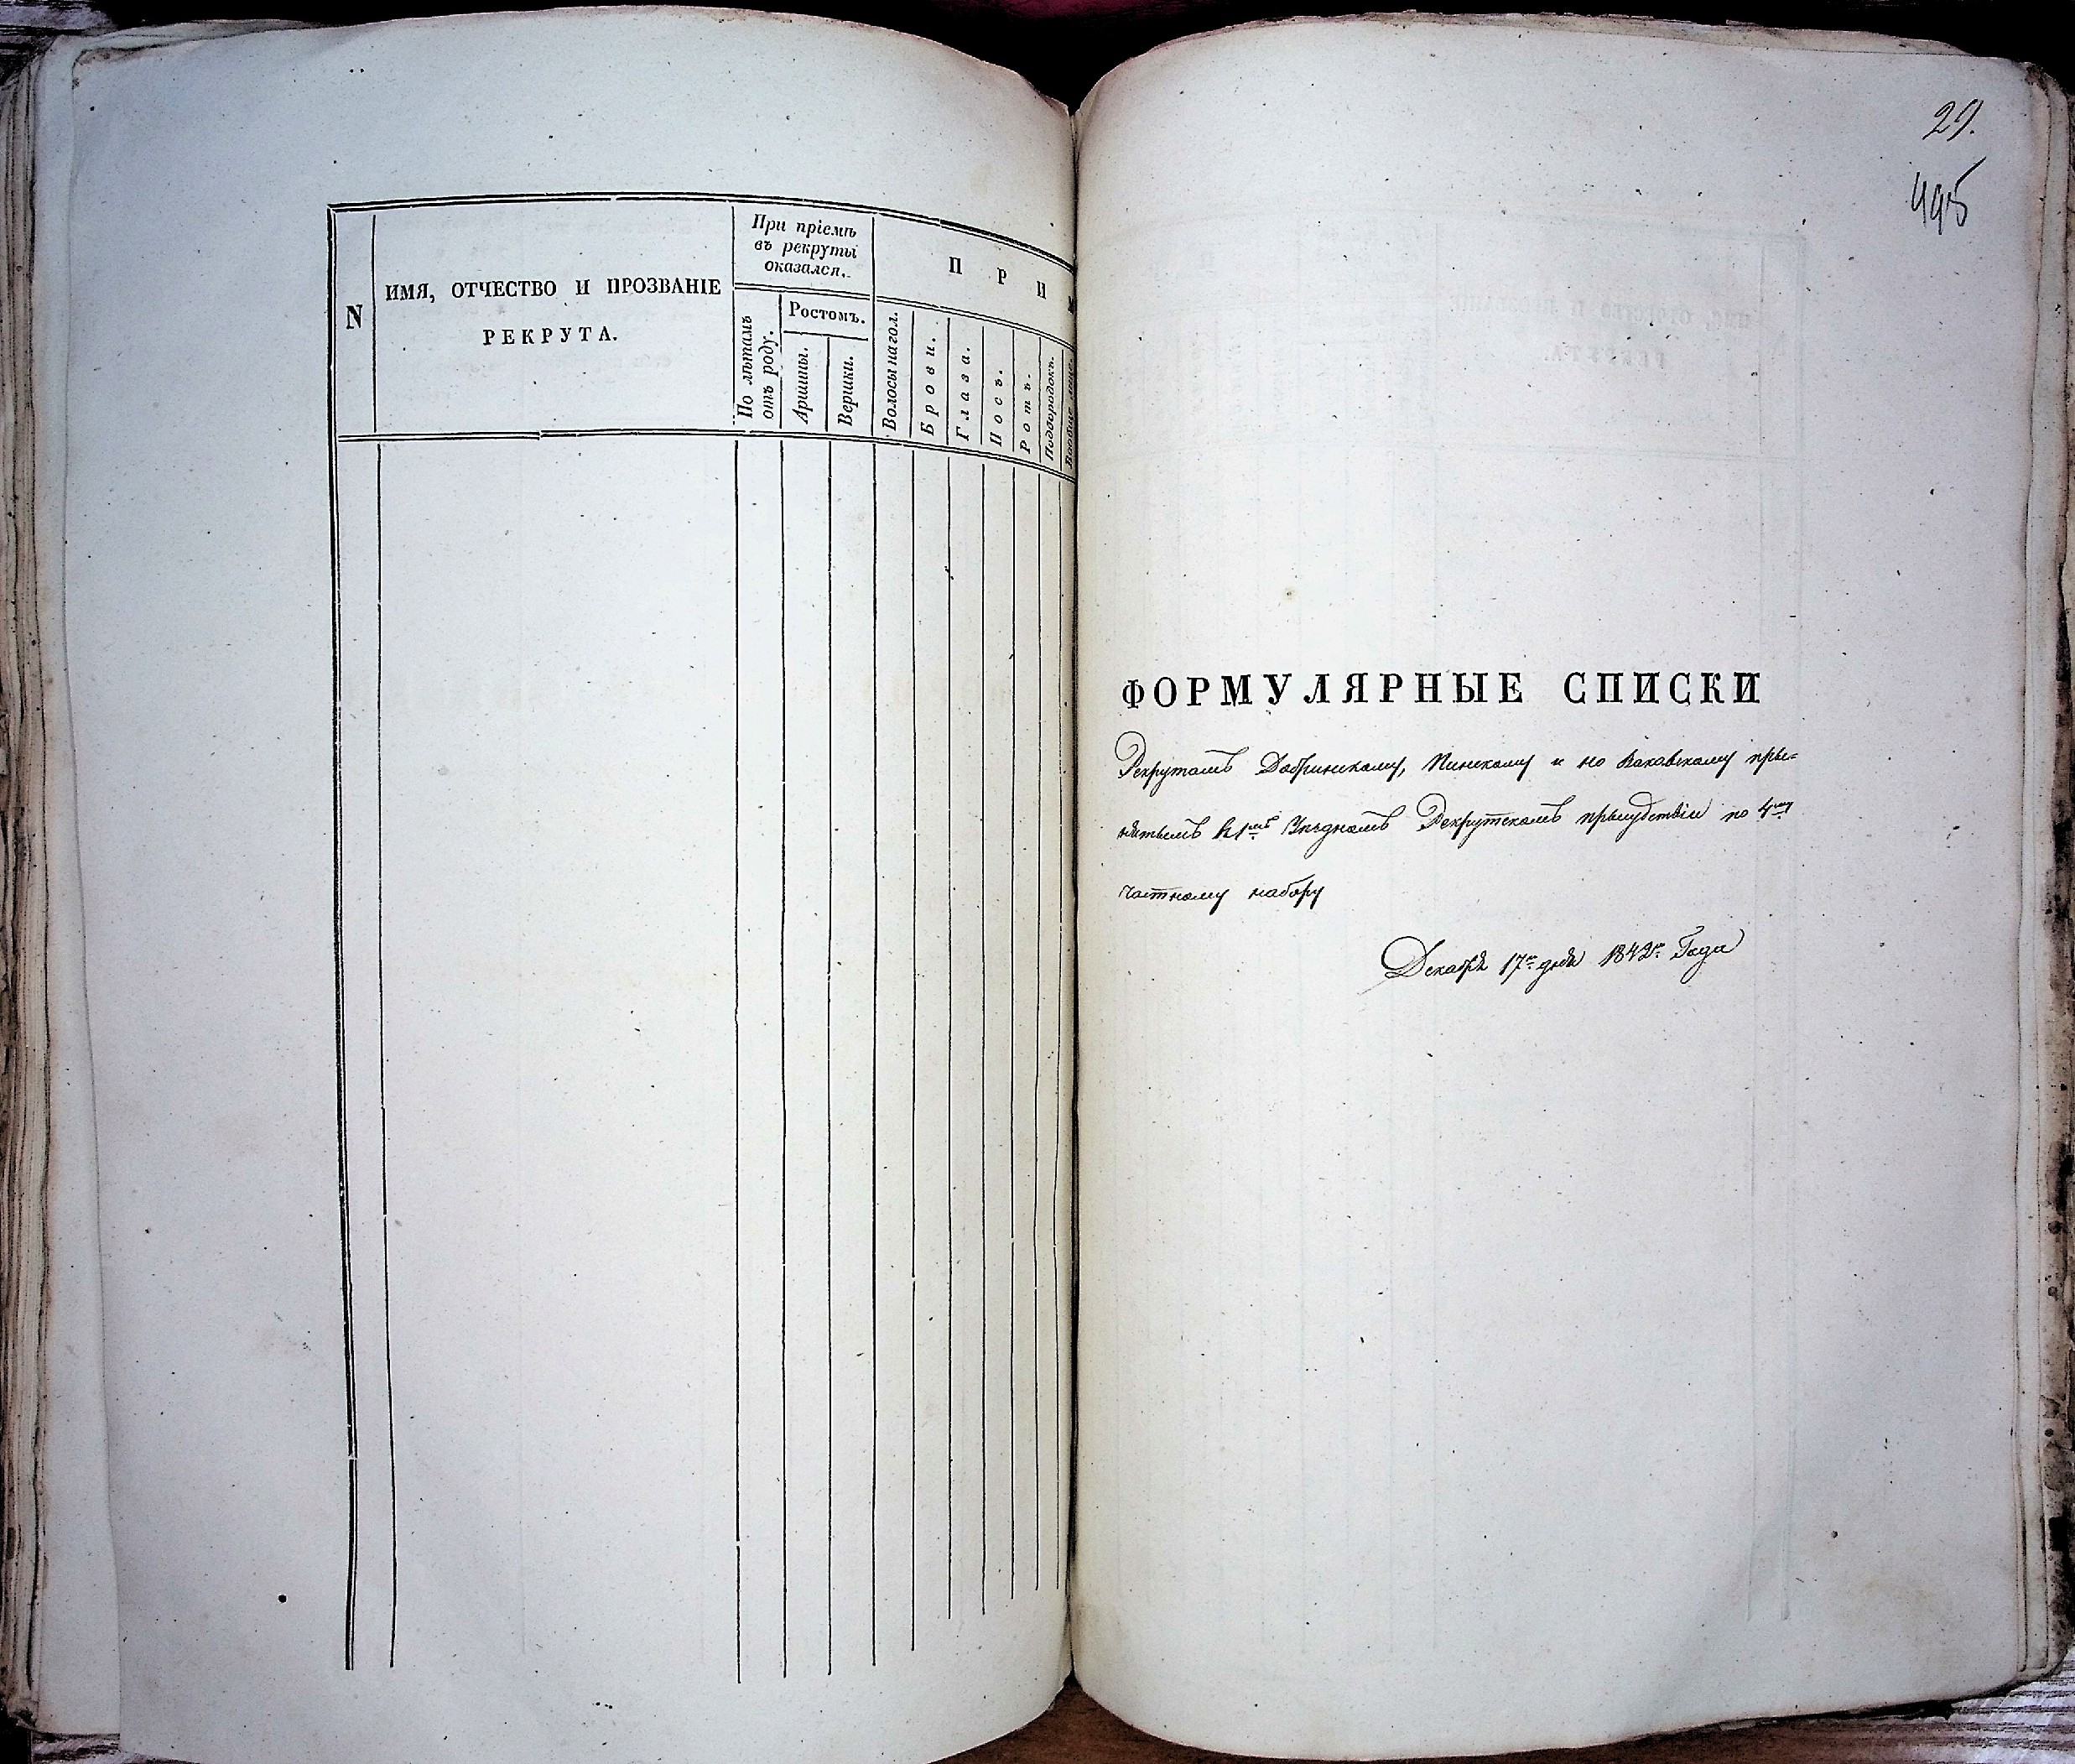 N
ИМЯ, ОТЧЕСТВО И ПРОЗВАНІЕ
РЕКРУТА.
При пріемѣ
въ рекруты
оказался.
По лѣтамъ
отъ роду.
Ростомъ.
Аршины.
Вершки.
П Р И М
Волосы на гол.
Брови.
Глаза.
Носъ.
Ротъ.
Подбородокъ.
Вообще лице.
29.
495
ФОРМУЛЯРНЫЕ СПИСКИ
Рекрутамъ Добринскому, Пинскому и пры=
нятымъ в 1мъ Уѣздномъ Рекрутскомъ прысудствіи по 4му
частному набору
Декабря 17го дня 1842го Года